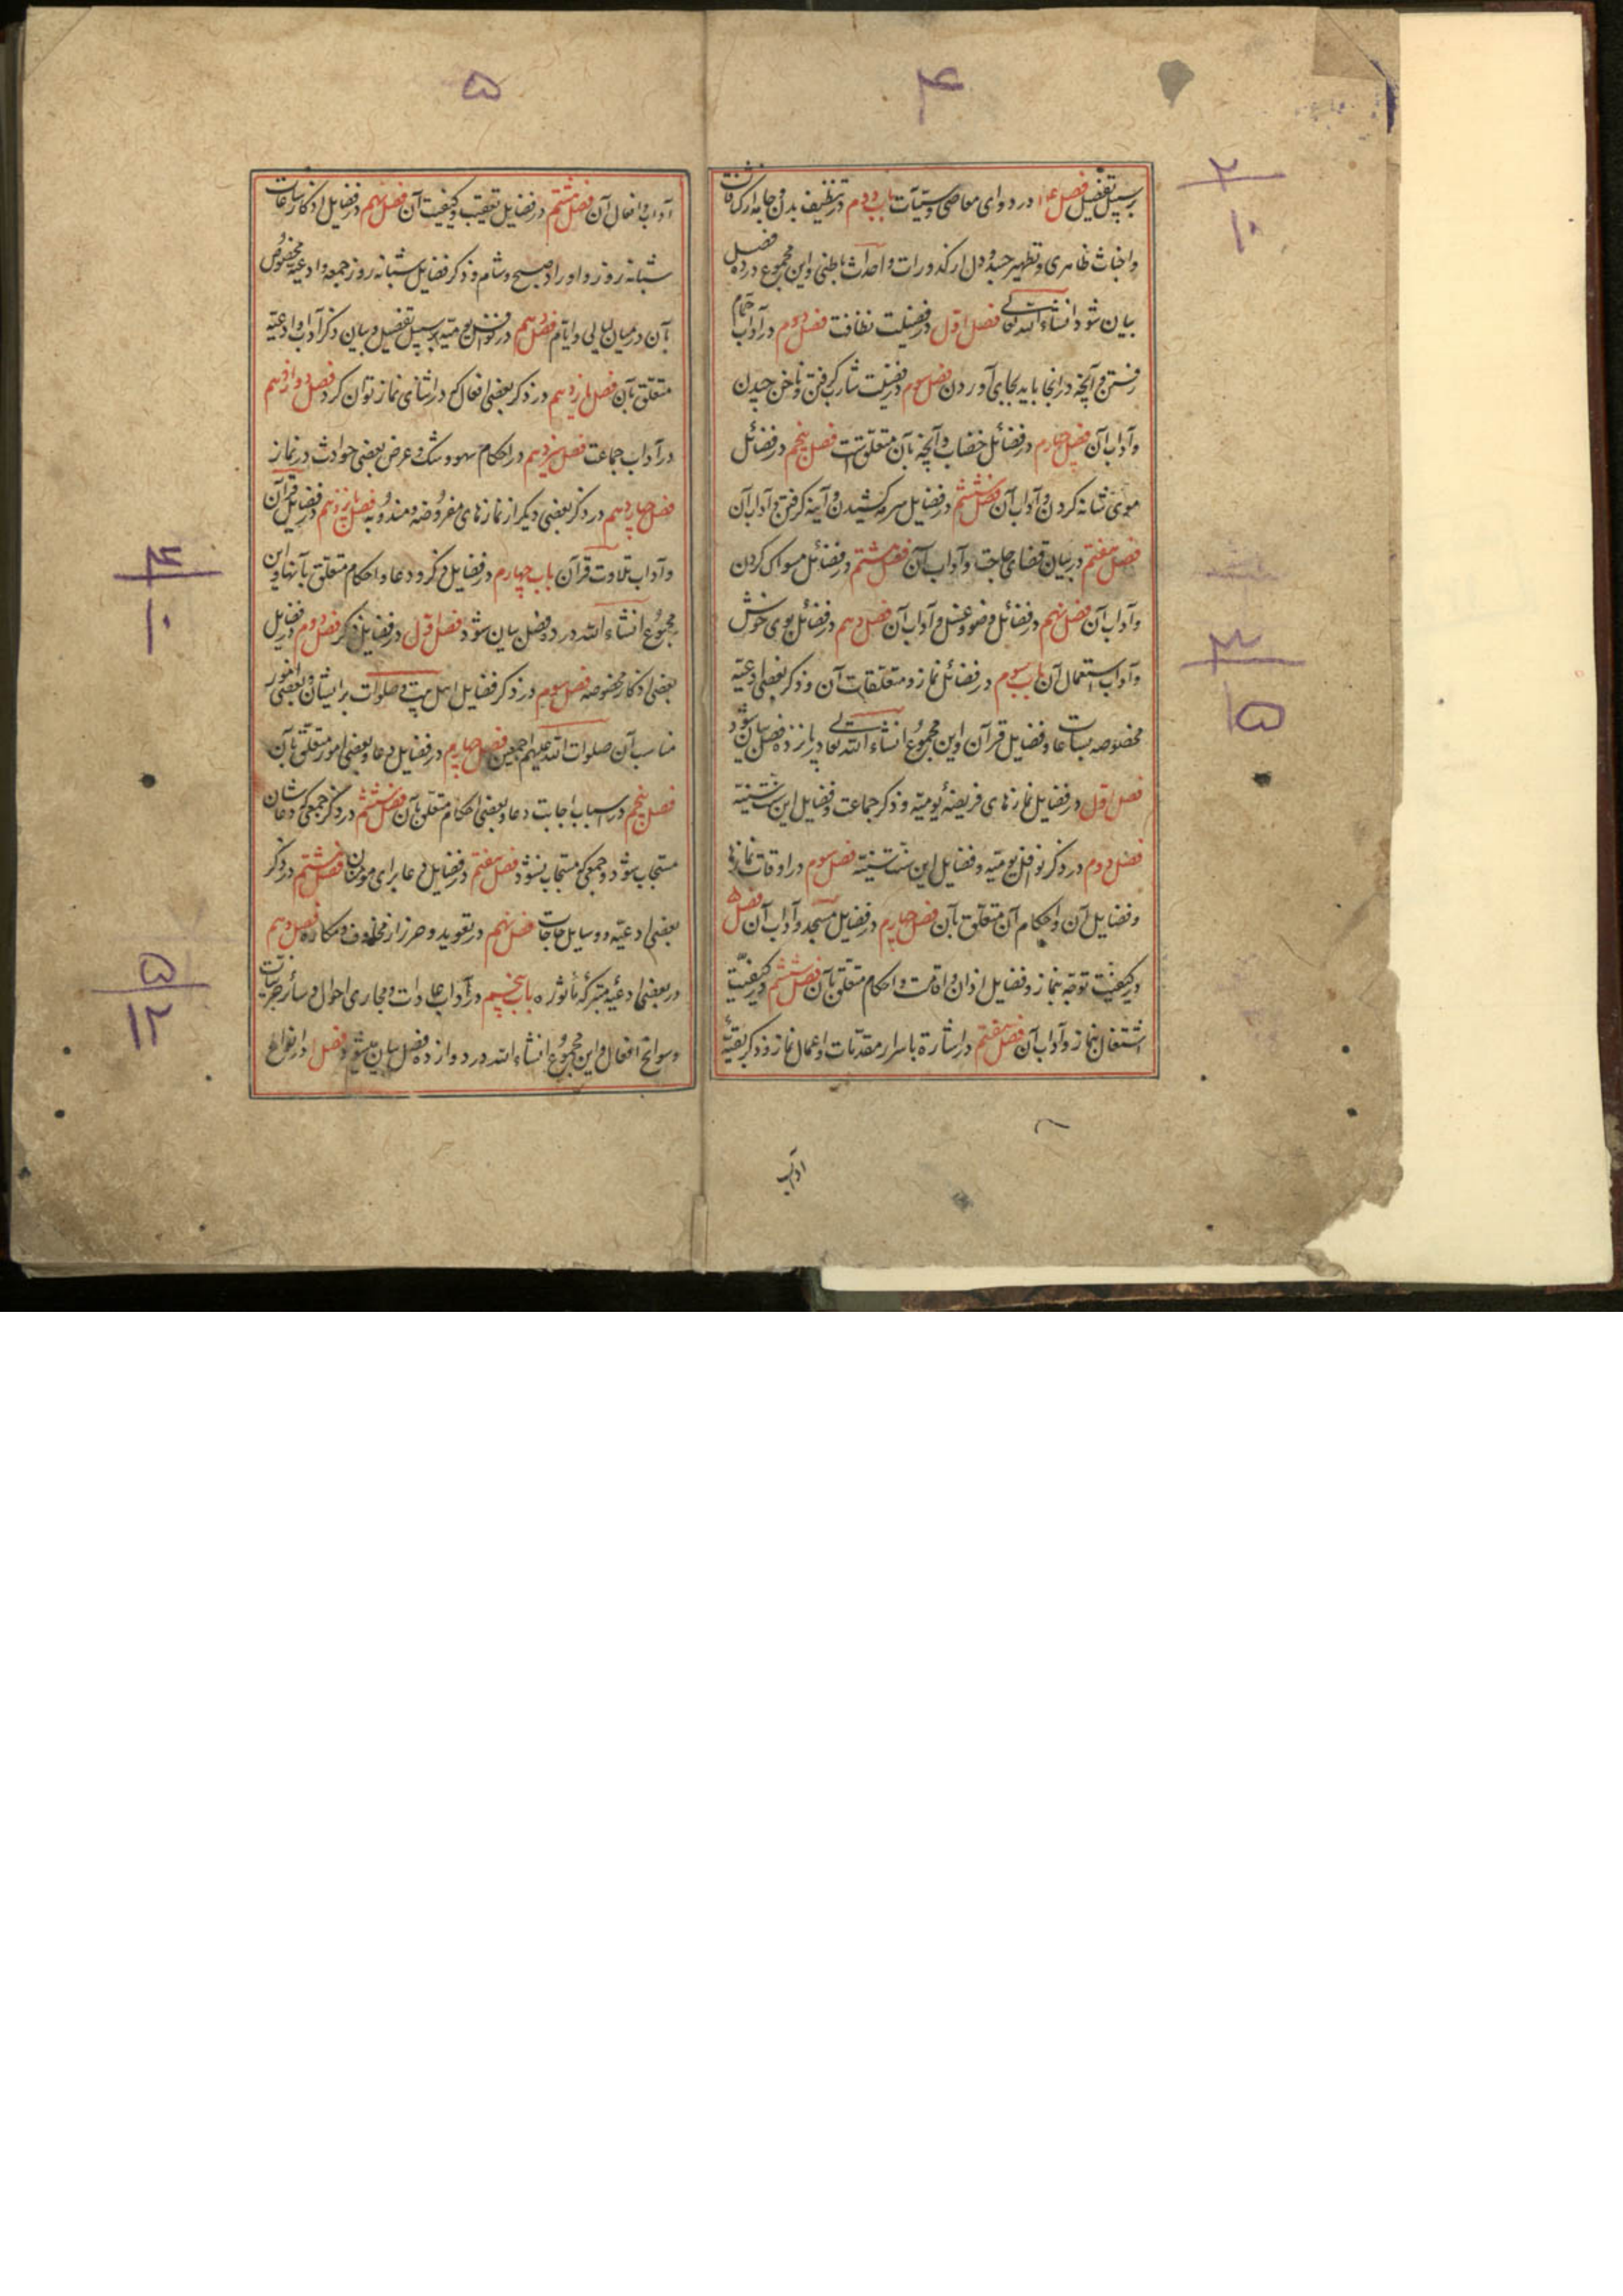 ۴
بر سبیل تفصیل فصل ۱۴ در دوای معاصی و سیّآت باب دوم در تنظیف بدن و جامه از کثافات
و اخباث ظاهری و تطهیر جسد و دل از کدورات و احداث باطنی و این مجموع در ده فصل
بیان شود انشاء الله تعالی فصل اول در فضیلت نظافت فصل دوم در آداب حمام
رفتن و آنچه در انجا باید بجای آوردن فصل سوم در فضیلت شارب گرفتن و ناخن چیدن
و آداب آن فصل چهارم در فضائل خضاب و آنچه بآن متعلق است فصل پنجم در فضائل
موی شانه کردن و آداب آن فصل ششم در فضایل سرمه کشیدن و آینه گرفتن و آداب آن
فصل هفتم در بیان قضای حاجت و آداب آن فصل هشتم در فضائل مسواک کردن
و آداب آن فصل نهم در فضائل وضو و غسل و آداب آن فصل دهم در فضائل بوی خوش
و آداب استعمال آن باب سوم در فضائل نماز و متعلقات آن و ذکر بعضی ادعیّه
مخصوصه بساعات و فضایل قرآن و این مجموع انشاء الله تعالی در پانزده فصل بیان شود
فصل اول در فضایل نمازهای فریضهٔ یومیّه و ذکر جماعت و فضایل این سنّت سنیّه
فصل دوم در ذکر نوافل یومیّه و فضایل این سنّت سنیّه فصل سوم در اوقات نمازها
و فضایل آن و احکام آن متعلق بآن فصل چهارم در فضایل مسجد و آداب آن فصل ۵
در کیفیّت توجّه بنماز و فضایل اذان و اقامت و احکام متعلق بآن فصل ششم در کیفیّت
اشتغال بنماز و آداب آن فصل هفتم در اشاره باسرار مقدّمات و اعمال نماز و ذکر بقیّهٔ
آداب
۲
۱۰
۳
۱۵
۵
آداب و افعال آن فصل هشتم در فضایل تعقیب و کیفیت آن فصل نهم در فضایل اذکار ساعات
شبانه روز و اوراد صبح و شام و ذکر فضایل شبانه روز جمعه و ادعیّه مخصوص
بآن در میان لیالی و ایّام فصل دهم در نوافل یومیّه بر سبیل تفصیل و بیان ذکر آداب و ادعیّه
متعلق بآن فصل یازدهم در ذکر بعضی افعال که در اثنای نماز توان کرد فصل دوازدهم
در آداب جماعت فصل سیزدهم در احکام سهو و شک و عرض بعضی حوادث در نماز
فصل چهاردهم در ذکر بعضی دیگر از نمازهای مفروضه و مندوبه فصل پانزدهم در فضایل قرآن
و آداب تلاوت قرآن باب چهارم در فضایل ذکر و دعا و احکام متعلق بآنها و این
مجموع انشاء الله در ده فصل بیان شود فصل اول در فضایل ذکر فصل دوم در فضایل
بعضی اذکار مخصوصه فصل سوم در ذکر فضایل اهل بیت و صلوات بر ایشان و بعضی امور
مناسب آن صلوات الله علیهم اجمعین فصل چهارم در فضایل دعا و بعضی امور متعلق بآن
فصل پنجم در اسباب اجابت دعا و بعضی احکام متعلق بآن فصل ششم در ذکر جمعی که دعاشان
مستجاب شود و جمعی که مستجاب نشود فصل هفتم در فضایل دعا برای مومنان فصل هشتم در ذکر
بعضی ادعیّه و وسایل حاجات فصل نهم در تعوید و حرز از مخاوف و مکاره فصل دهم
در بعضی ادعیّه متبرکهٔ مأثوره باب پنجم در آداب عادات و مجاری احوال و سائر
و سوانح افعال و این مجموع انشاء الله در دوازده فصل بیان میشود فصل ۱ در انواع
۴
۱۰
۵
۱۲